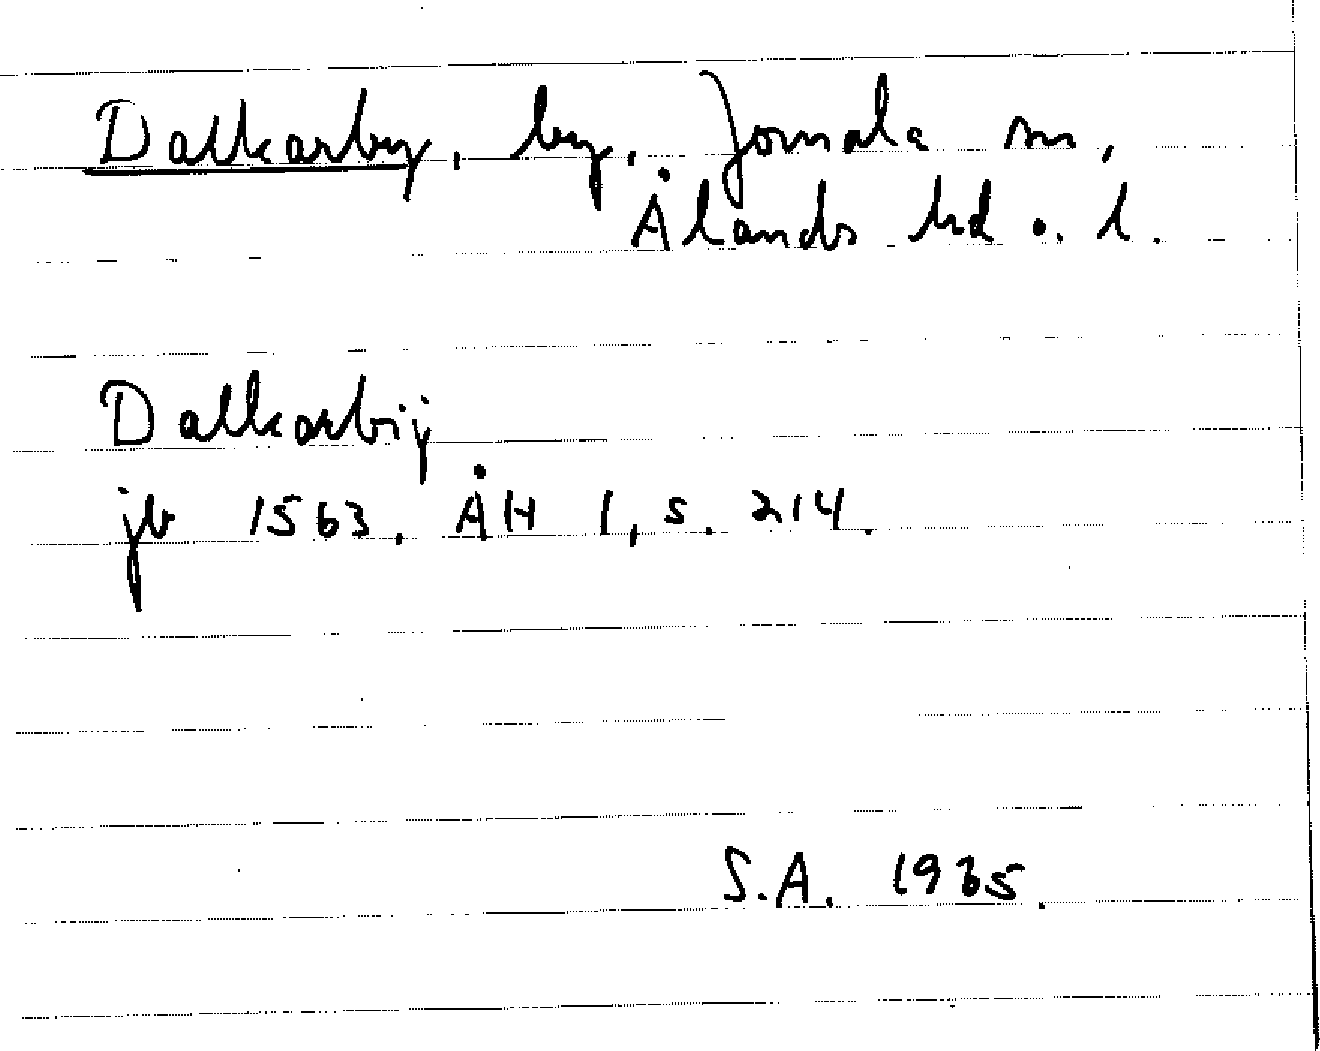 Dalkarby, by, Jomala sn,
Ålands hd o. l.
Dalkarbij
jb 1563. ÅH 1, s. 214.
S.A. 1965.